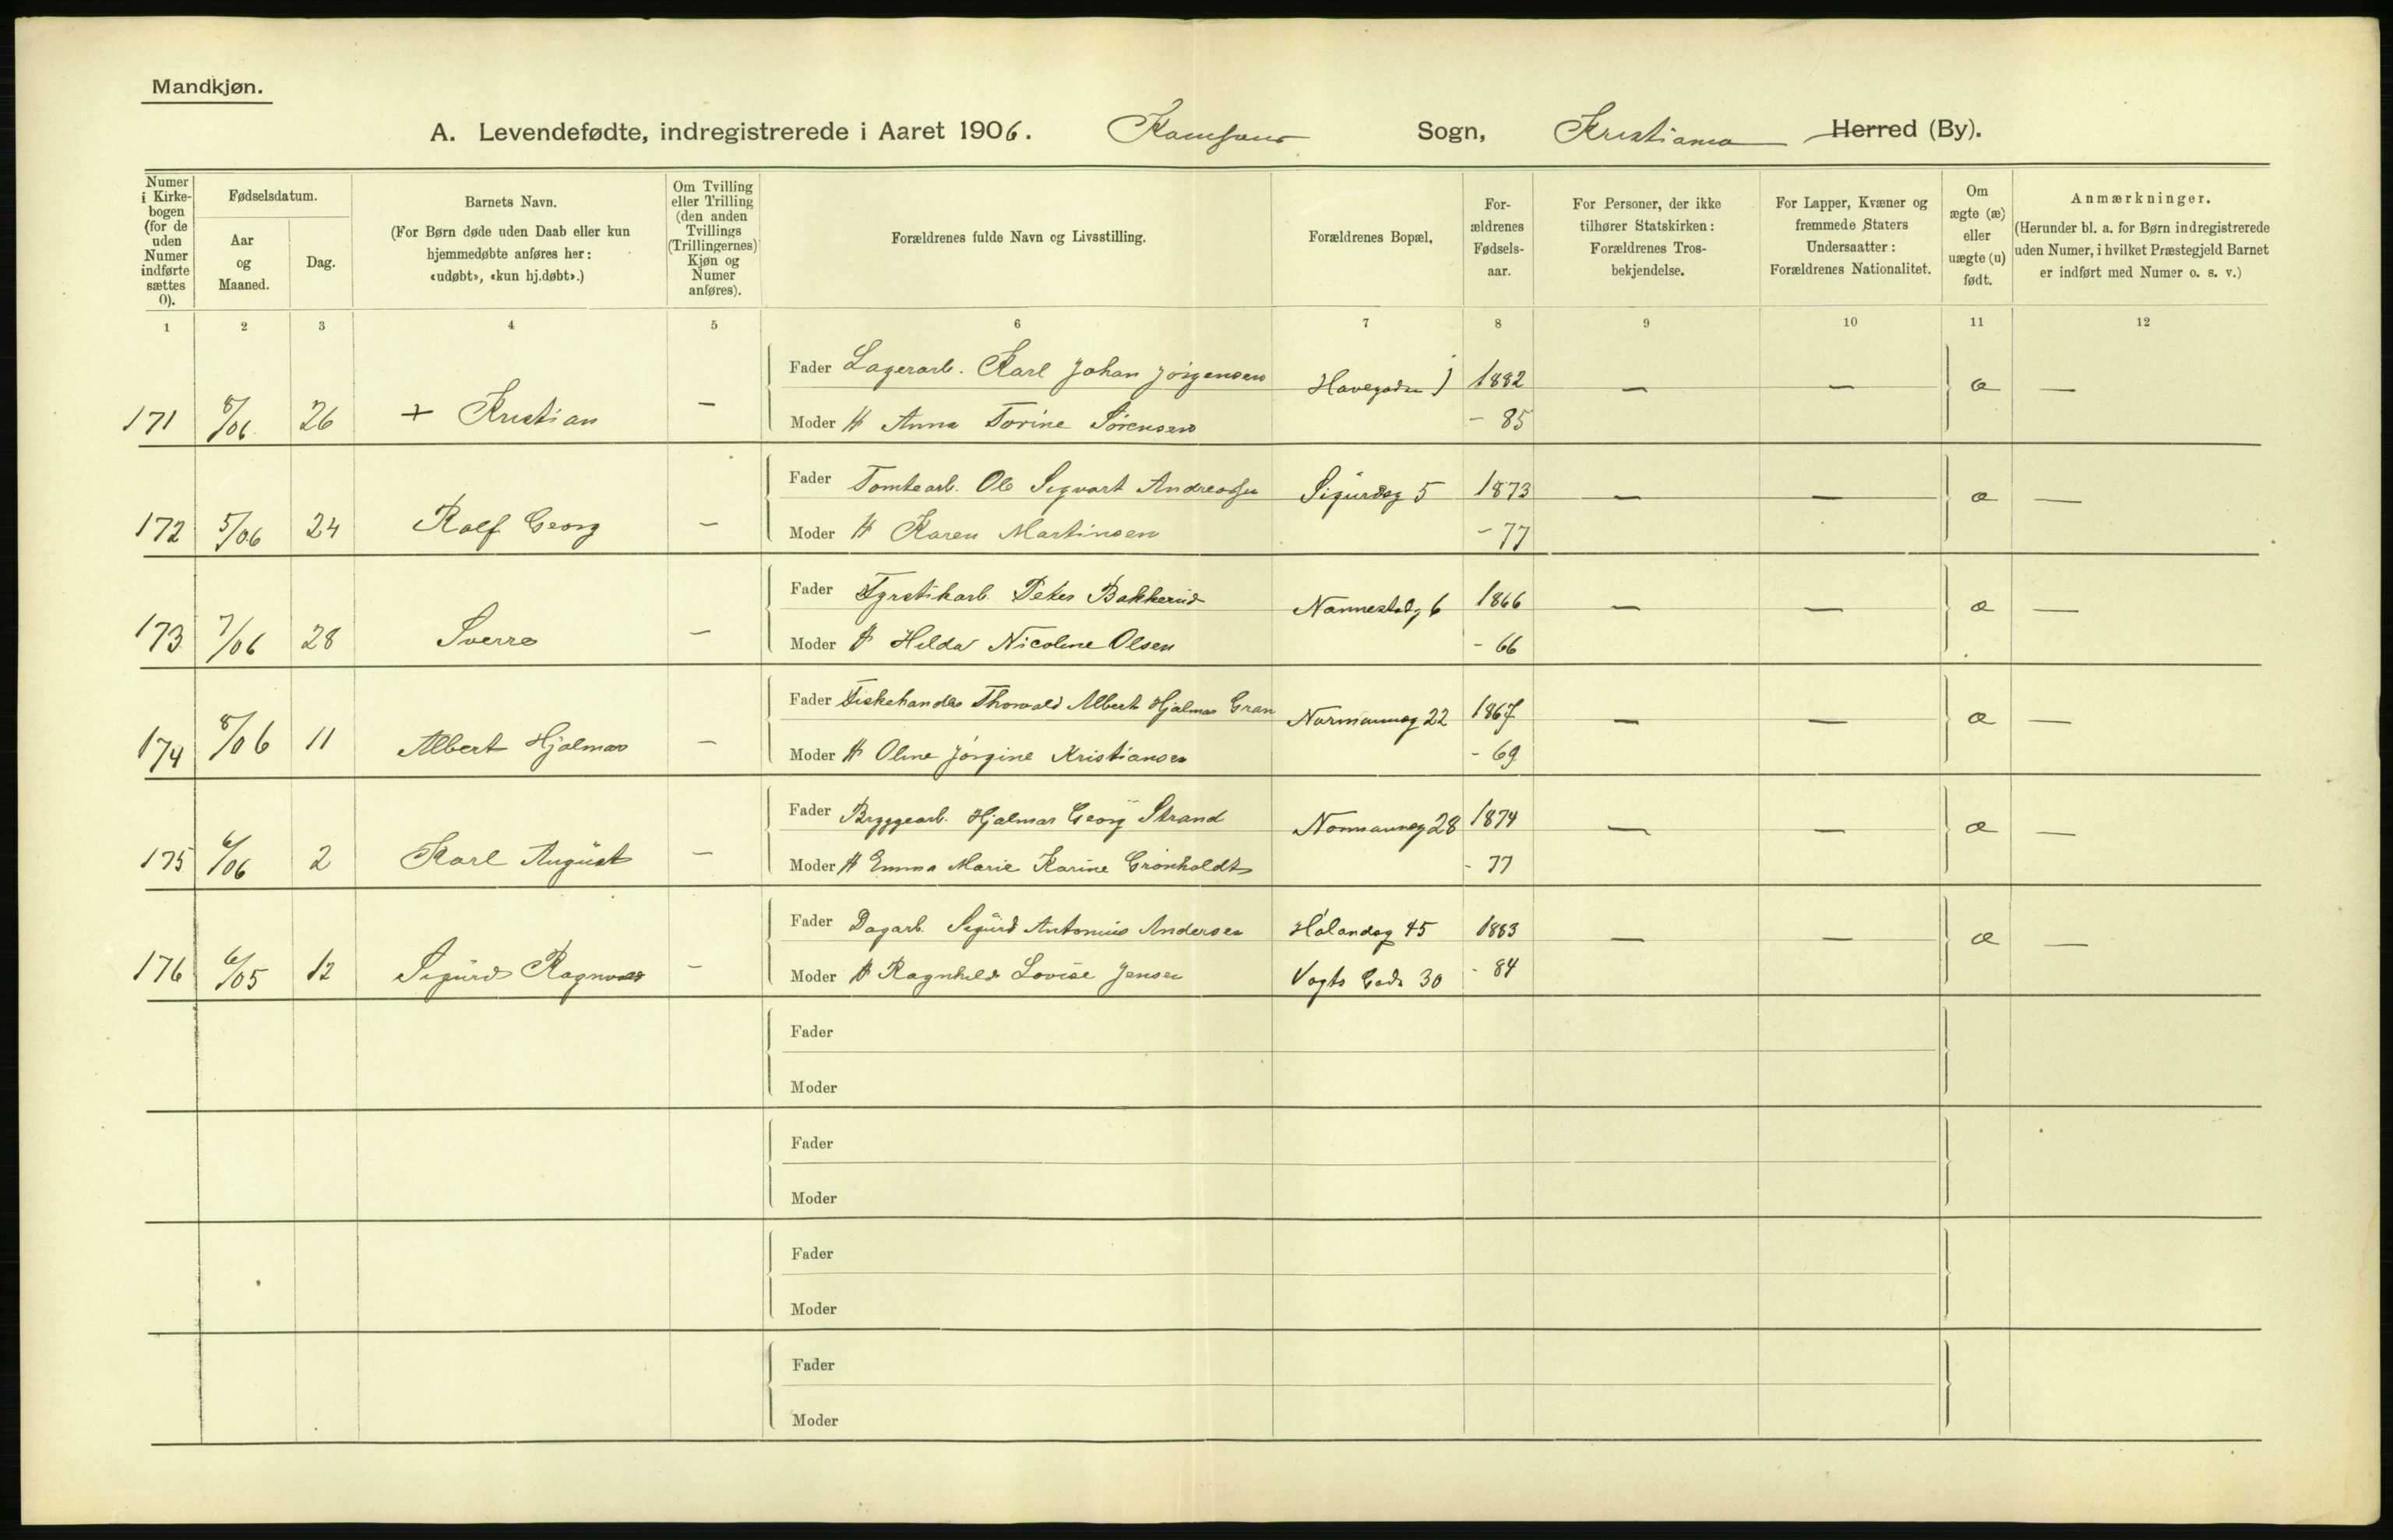 Mandkjøn.
A. Levendefødte, indregistrerede i Aaret 1906. Sogn, Kristiania Herred (By).
Numer i Kirkebogen (for de uden Numer indførte sættes 0).
Fødselsdatum.
Aar og Maaned.
Dag.
Barnets Navn.
(For Børn døde uden Daab eller kun hjemmedøbte anføres her: «udøbt», «kun hj.døbt».)
Om Tvilling eller Trilling (den anden Tvillings (Trillingernes) Kjøn og Numer anføres).
Forældrenes fulde Navn og Livsstilling.
Forældrenes Bopæl,
Forældrenes Fødselsaar.
For Personer, der ikke tilhører Statskirken: Forældrenes Trosbekjendelse.
For Lapper, Kvæner og fremmede Staters Undersaatter: Forældrenes Nationalitet.
Om ægte (æ) eller uægte (u) født.
Anmærkninger.
(Herunder bl. a. for Børn indregistrerede uden Numer, i hvilket Præstegjeld Barnet er indført med Numer o. s. v.)
1 2 3 4 5 6 7 8 9 10 11 12
Fader Lagerarb. Karl Johan Jörgensen Havegaden 1882 — — æ —
171 8/06 26 + Kristian — Moder H Anna Torine Sörensen - 85
Fader Tomtearb. Ole Sigvart Andreassen Sigurdsg 5 1873 — — æ —
172 5/06 24 Rolf Georg — Moder H Karen Martinsen - 77
Fader Fyrstikarb. Peter Bakkerud Nannestadg 6 1866 — — æ —
173 7/06 28 Sverre — Moder H Hilda Nicoline Olsen - 66
Fader Fiskehandler Thorvald Albert Hjalmar Gran Normannsg 22 1867 — — æ —
174 8/06 11 Albert Hjalmar — Moder H Oline Jörgine Kristiansen - 69
Fader Bryggearb. Hjalmar Georg Strand Normannsg 28 1874 — — æ —
175 6/06 2 Karl August — Moder H Emma Marie Karine Grönholdt - 77
Fader Dagarb. Sigurd Antonius Andersen Hölandsg 45 1883 — — æ —
176 6/05 12 Sigurd Ragnvald — Moder H Ragnhild Lovise Jensen Vogts Gade 30 - 84
Fader
Moder
Fader
Moder
Fader
Moder
Fader
Moder